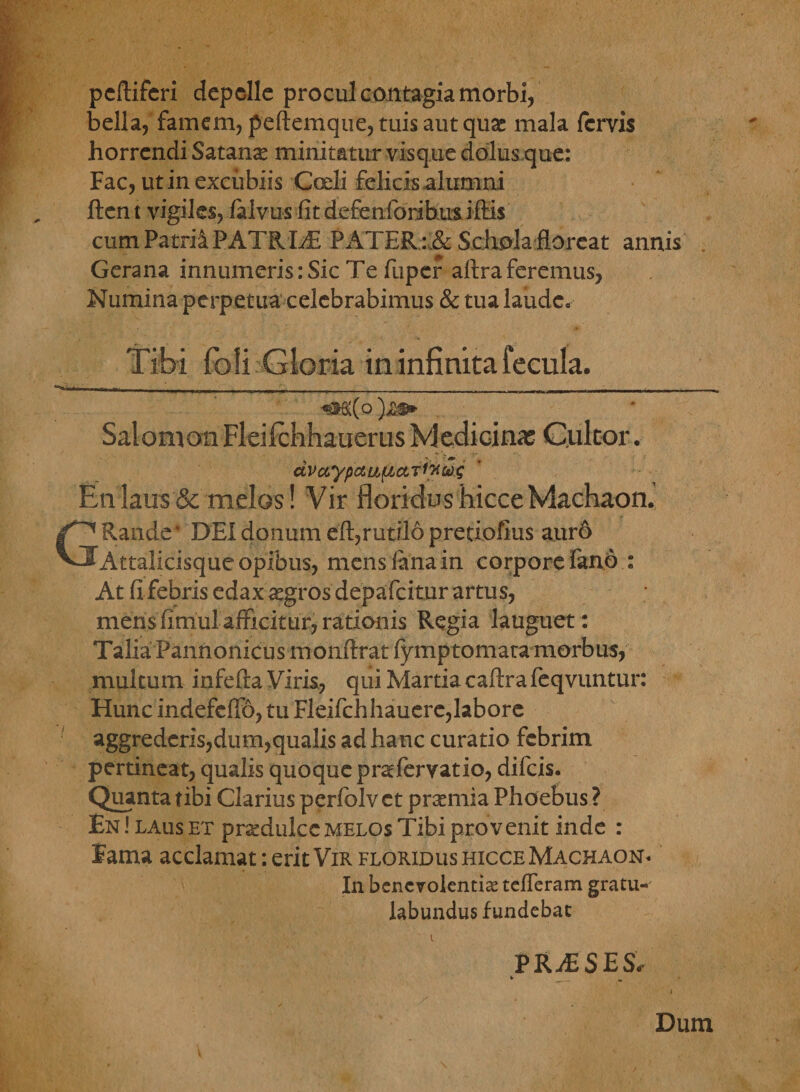 peſtiferi depelle procul contagia morbi,
bella, famem, peſtemque, tuis aut quæ mala ſervis
horrendi Satanæ minitatur visque dolusque:
Fac, ut in excubiis Cœli felicis alumni
ſtent vigiles, ſalvus ſit defenſoribus iſtis
cum Patriâ PATRIÆ PATER: & Schola floreat annis
Gerana innumeris: Sic Te ſuper aſtra feremus,
Numina perpetua celebrabimus & tua laude.
Tibi ſoli Gloria in infinita ſecula.
(o)
Salomon Fleiſchhauerus Medicinæ Cultor.
ἀναγραμματικῶς
En laus & melos! Vir floridus hicce Machaon.
GRande DEI donum eſt, rutilô pretioſius aurô
Attalicisque opibus, mens ſana in corpore ſanô :
At ſi febris edax ægros depaſcitur artus,
mens ſimul afficitur, rationis Regia lauguet :
Talia Pannonicus monſtrat ſymptomata morbus,
multum infeſta Viris, qui Martia caſtra ſeqvuntur:
Hunc indefeſſô, tu Fleiſchhauere, labore
aggrederis, dum, qualis ad hanc curatio febrim
pertineat, qualis quoque præſervatio, diſcis.
Quanta tibi Clarius perſolvet præmia Phoebus ?
EN ! LAUS ET prædulce MELOS Tibi provenit inde :
Fama acclamat : erit VIR FLORIDUS HICCE MACHAON.
In benevolentiæ teſſeram gratu-
labundus fundebat
PRÆSES.
Dum